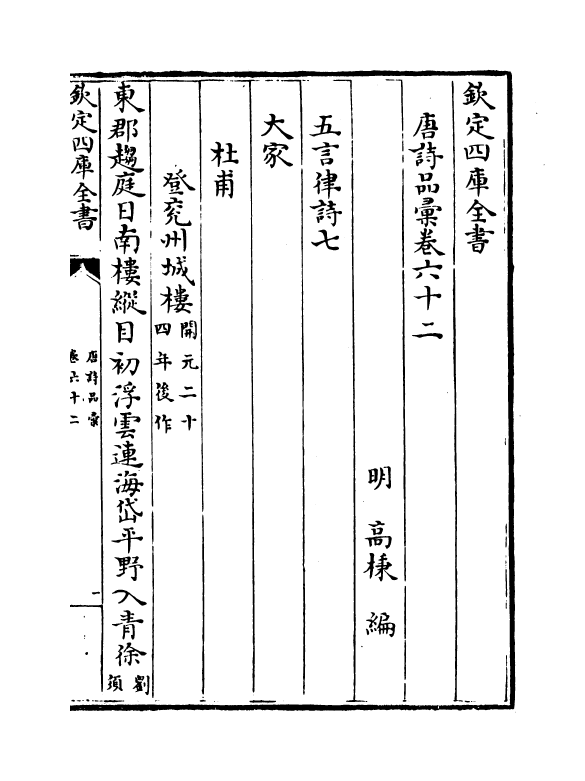 欽定四庫全書
唐詩品彙卷六十二
明 高棅 編
五言律詩七
大家
杜甫
登兖州城樓開元二十四年後作
東郡趨庭日南樓縱目初浮雲連海岱平野入青徐劉須
欽定四庫全書
唐詩品彙
卷六十二
一